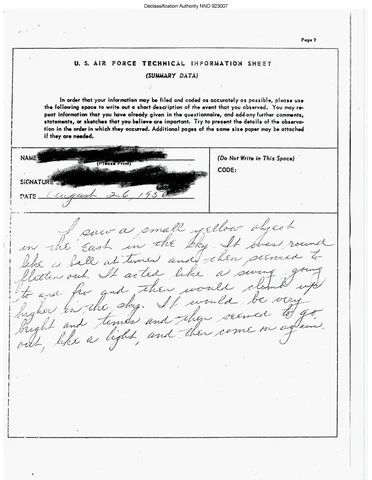 Declassification Authority NND 923007
Page 9
U. S. AIR FORCE TECHNICAL INFORMATION SHEET
(SUMMARY DATA)
In order that your information may be filed and coded as accurately as possible, please use
the following space to write out a short description of the event that you observed. You may re-
peat information that you have already given in the questionnaire, and add any further comments,
statements, or sketches that you believe are important. Try to present the details of the observa-
tion in the order in which they occurred. Additional pages of the same size paper may be attached
if they are needed.
NAME
(Please Print)
SIGNATURE
DATE August 26, 195
(Do Not Write in This Space)
CODE:
I saw a small yellow object
in the East in the sky. It was round
like a ball at times and then seemed to
flatten out. It acted like a swing going
to and fro and then would climb up
higher in the sky. It would be very
bright and times and then seemed to go
out, like a light, and then come on again.